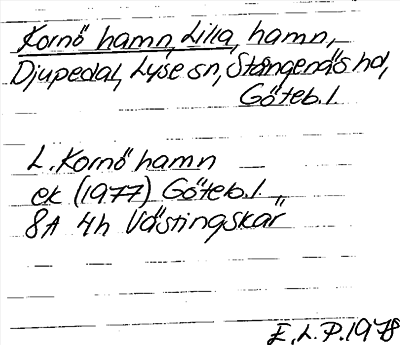 Kornö hamn, Lilla, hamn,
Djupedal, Lyse sn, Stångenäs hd,
Göteb. l.
L. Kornö hamn
ek (1977) Göteb. l.
8A 4h Västingskär
E. L. P. 1978